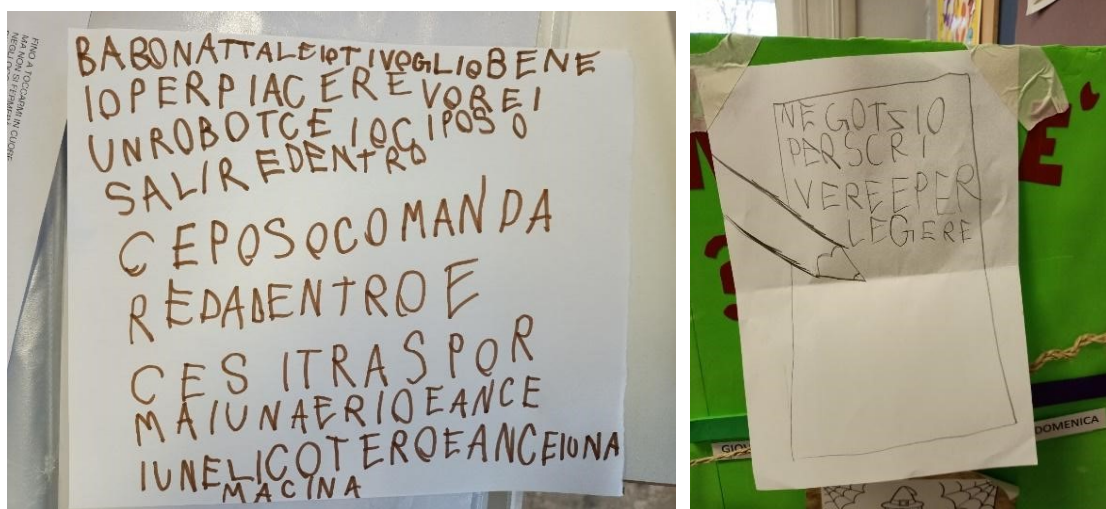 FINO A TOCCARMI IN CUORE
MA NON SI FERMERÀ
BABONATTALEIOTIVOGLIOBENE
IOPERPIACEREVOREI
UNROBOTCEIOCIPOSO
SALIREDENTRO
CEPOSOCOMANDA
REDADENTROE
CESITRASPOR
MAIUNAERIOEANCE
IUNELICOTEROEANCEIUNA
MACINA
NEGOTSIO
PERSCRI
VEREEPER
LEGERE
GIOV
DOMENICA